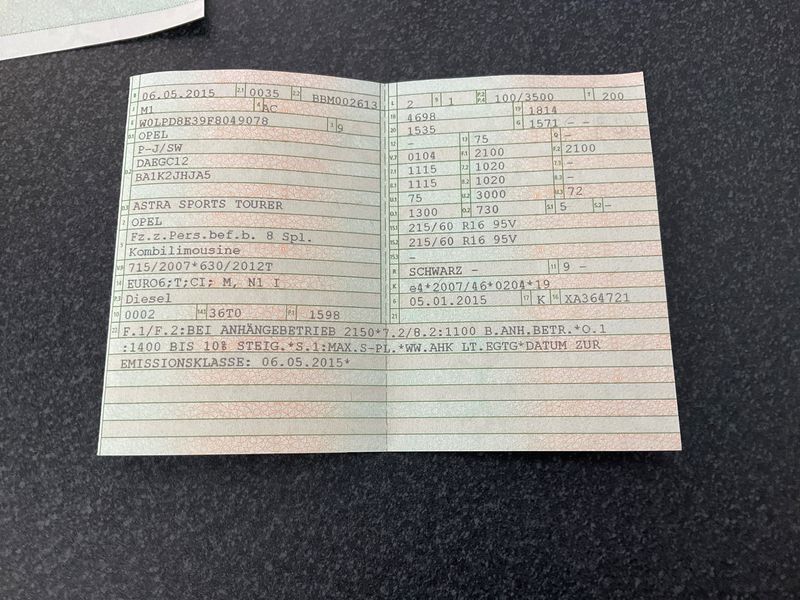 B 06.05.2015 2.1 0035 2.2 BBM002613
J M1 4 AC
E W0LPD8E39F8049078 3 9
D.1 OPEL
P-J/SW
D.2 DAEGC12
BA1K2JHJA5
D.3 ASTRA SPORTS TOURER
2 OPEL
5 Fz.z.Pers.bef.b. 8 Spl.
Kombilimousine
V.9 715/2007*630/2012T
14 EURO6;T;CI; M, N1 I
P.3 Diesel
10 0002 14.1 36T0 P.1 1598
L 2 9 1 P.2 P.4 100/3500 T 200
18 4698 19 1814
20 1535 G 1571 - -
12 - 13 75 Q -
V.7 0104 F.1 2100 F.2 2100
7.1 1115 7.2 1020 7.3 -
8.1 1115 8.2 1020 8.3 -
U.1 75 U.2 3000 U.3 72
O.1 1300 O.2 730 S.1 5 S.2 -
15.1 215/60 R16 95V
15.2 215/60 R16 95V
15.3 -
R SCHWARZ - 11 9 -
K e4*2007/46*0204*19
6 05.01.2015 17 K 16 XA364721
21
22 F.1/F.2:BEI ANHÄNGEBETRIEB 2150*7.2/8.2:1100 B.ANH.BETR.*O.1
:1400 BIS 10% STEIG.*S.1:MAX.S-PL.*WW.AHK LT.EGTG*DATUM ZUR
EMISSIONSKLASSE: 06.05.2015*